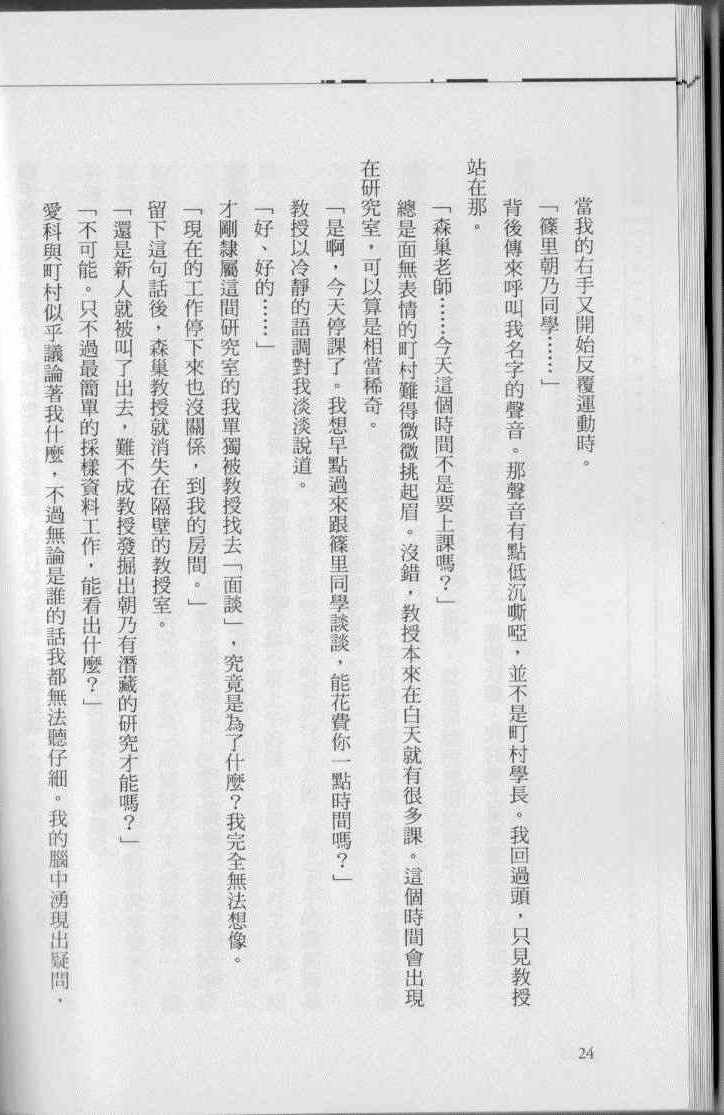 當我的右手又開始反覆運動時。
「篠里朝乃同學……」
背後傳來呼叫我名字的聲音。那聲音有點低沉嘶啞，並不是町村學長。我回過頭，只見教授
站在那。
「森巢老師……今天這個時間不是要上課嗎？」
總是面無表情的町村難得微微挑起眉。沒錯，教授本來在白天就有很多課。這個時間會出現
在研究室，可以算是相當稀奇。
「是啊，今天停課了。我想早點過來跟篠里同學談談，能花費你一點時間嗎？」
教授以冷靜的語調對我淡淡說道。
「好、好的……」
才剛隸屬這間研究室的我單獨被教授找去「面談」，究竟是為了什麼？我完全無法想像。
「現在的工作停下來也沒關係，到我的房間。」
留下這句話後，森巢教授就消失在隔壁的教授室。
「還是新人就被叫了出去，難不成教授發掘出朝乃有潛藏的研究才能嗎？」
「不可能。只不過最簡單的採樣資料工作，能看出什麼？」
愛科與町村似乎議論著我什麼，不過無論是誰的話我都無法聽仔細。我的腦中湧現出疑問，
24